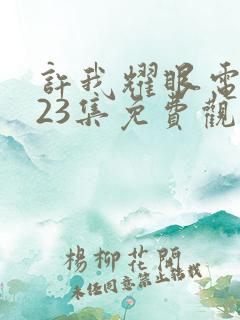 許我耀眼電
23集免費觀
楊柳花開
未经同意禁止转载